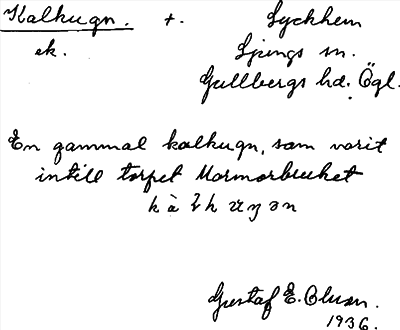 Kalkugn. +. Lyckhem
ek. Ljungs sn.
Gullbergs hd. Ögl.
En gammal kalkugn, som varit
intill torpet Marmorbruket
Gustaf E. Olson.
1936.